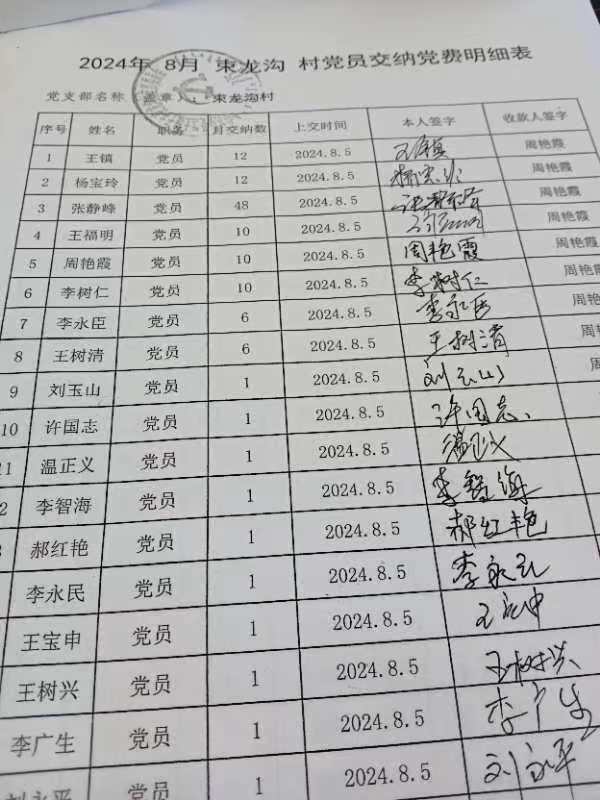 2024年 8月 束龙沟 村党员交纳党费明细表
党支部名称（盖章）：束龙沟村
序号 姓名 职务 月交纳数 上交时间 本人签字 收款人签字
1 王镇 党员 12 2024.8.5 王镇 周艳霞
2 杨宝玲 党员 12 2024.8.5 杨宝玲 周艳霞
3 张静峰 党员 48 2024.8.5 周艳霞
4 王福明 党员 10 2024.8.5 周艳霞
5 周艳霞 党员 10 2024.8.5 周艳霞 周艳霞
6 李树仁 党员 10 2024.8.5 李树仁 周艳霞
7 李永臣 党员 6 2024.8.5 李永臣 周艳
8 王树清 党员 6 2024.8.5 王树清 周
9 刘玉山 党员 1 2024.8.5 刘玉山
10 许国志 党员 1 2024.8.5 许国志
11 温正义 党员 1 2024.8.5 温正义
2 李智海 党员 1 2024.8.5 李智海
郝红艳 党员 1 2024.8.5 郝红艳
李永民 党员 1 2024.8.5 李永民
王宝申 党员 1 2024.8.5 王宝申
王树兴 党员 1 2024.8.5 王树兴
李广生 党员 1 2024.8.5 李广生
刘永平 党员 1 2024.8.5 刘永平